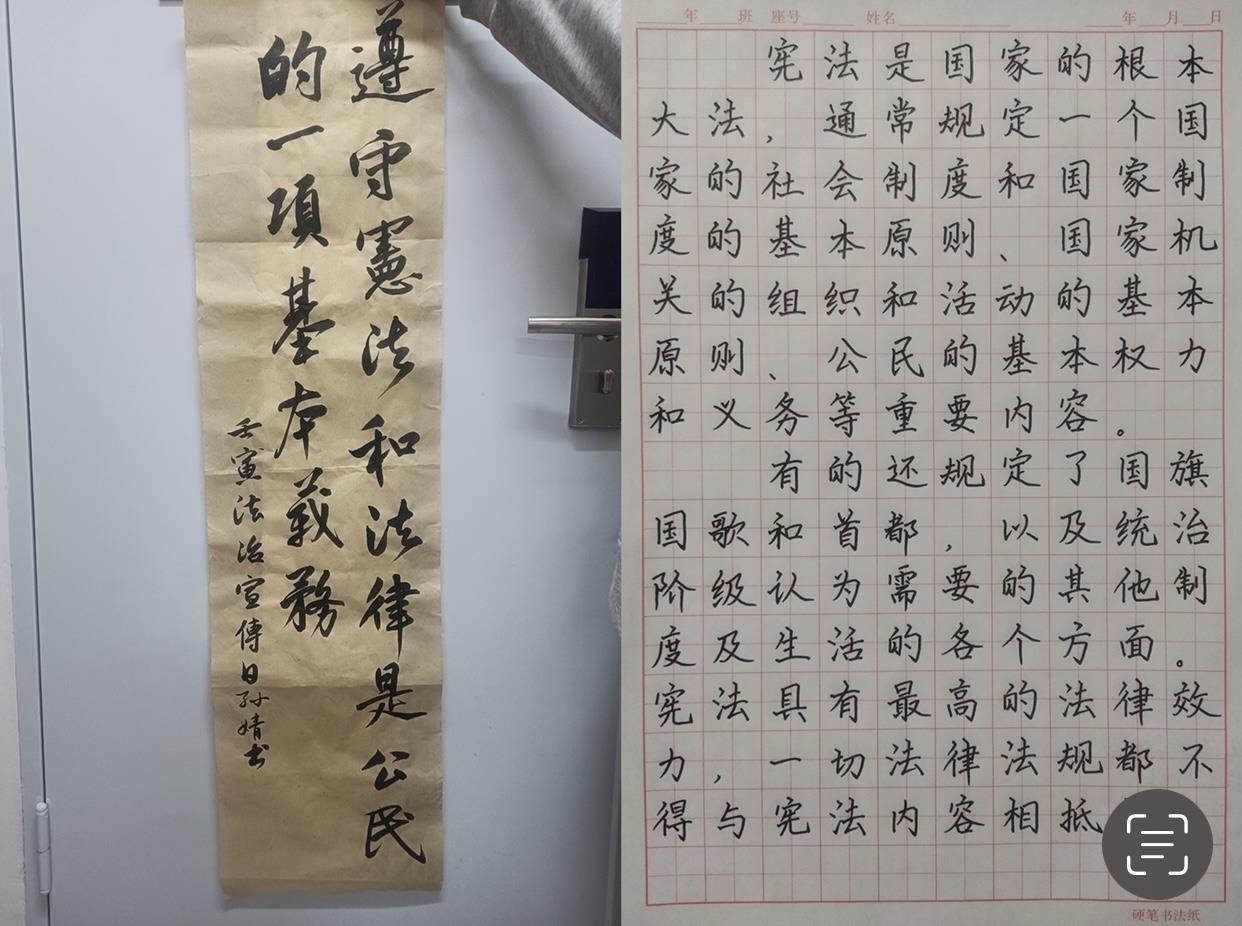 遵守憲法和法律是公民
的一項基本義務
壬寅法治宣傳日孙婧书
年 班 座号 姓名 年 月 日
宪法是国家的根本
大法，通常规定一个国
家的社会制度和国家制
度的基本原则、国家机
关的组织和活动的基本
原则、公民的基本权力
和义务等重要内容。
有的还规定了国旗
国歌和首都，以及统治
阶级认为需要的其他制
度及生活的各个方面。
宪法具有最高的法律效
力，一切法律法规都不
得与宪法内容相抵
硬笔书法纸